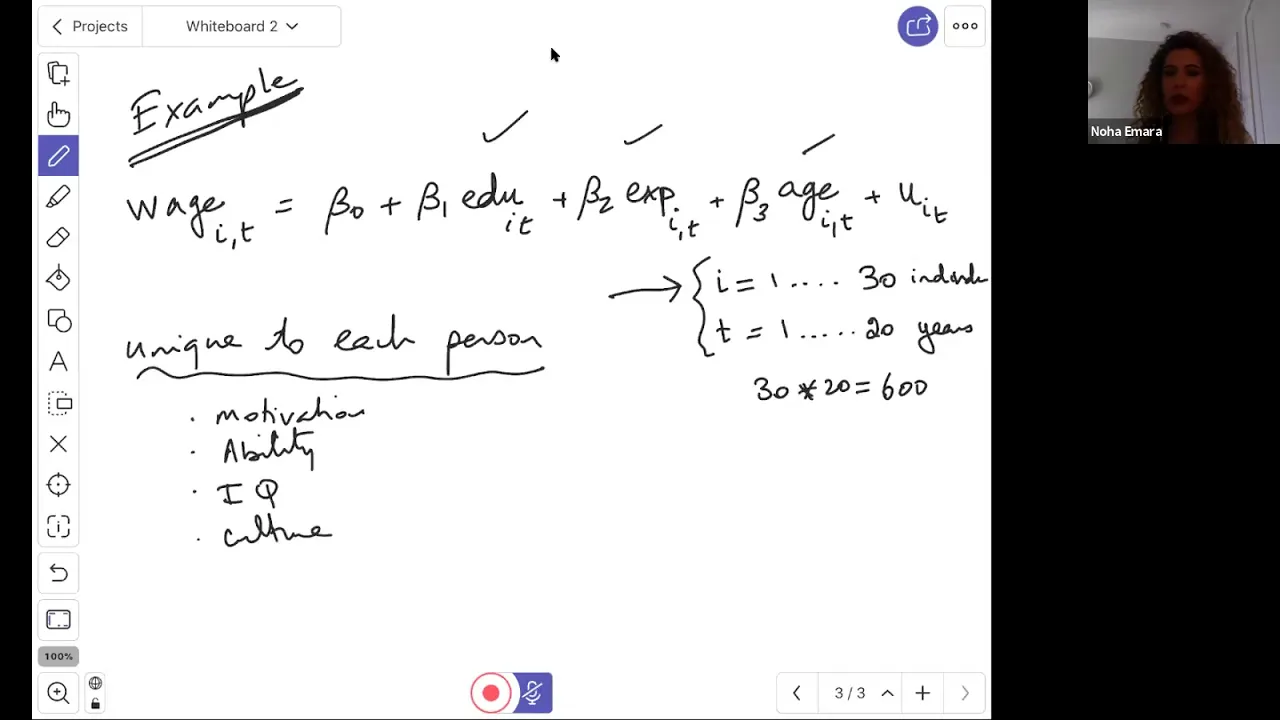 Projects
Whiteboard 2
Noha Emara
Example
wage i,t = β0 + β1 edu it + β2 exp. i,t + β3 age i,t + u it
i = 1 .... 30
t = 1 ..... 20 years
30 * 20 = 600
unique to each person
· motivation
· Ability
· IQ
· culture
A
100%
3 / 3